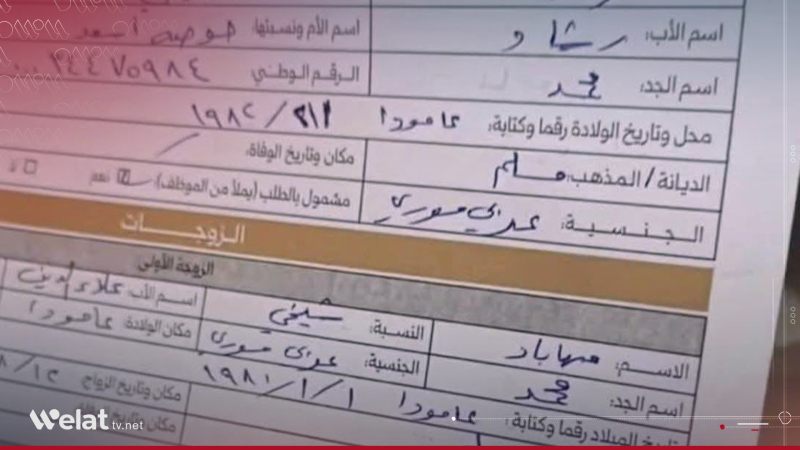 اسم الأب: رشاد
اسم الأم ونسبتها:
اسم الجد: محمد
الرقم الوطني ٣٤٤٧٥٩٨٤
محل وتاريخ الولادة رقما وكتابة: عامودا ١٩٨٢/
الديانة / المذهب: مسلم
مكان وتاريخ الوفاة:
الجنسية: عربي سوري
مشمول بالطلب (يملأ من الموظف): نعم
الزوجات
الزوجة الأولى
الاسم: مهاباد
النسبة: شيخي
اسم الأب: علاء الدين
اسم الجد: محمد
الجنسية: عربي سوري
مكان الولادة: عامودا
تاريخ الميلاد رقما وكتابة: عامودا ١٩٨١/١/١
مكان وتاريخ الزواج
مكان وتاريخ
Welat
tv.net